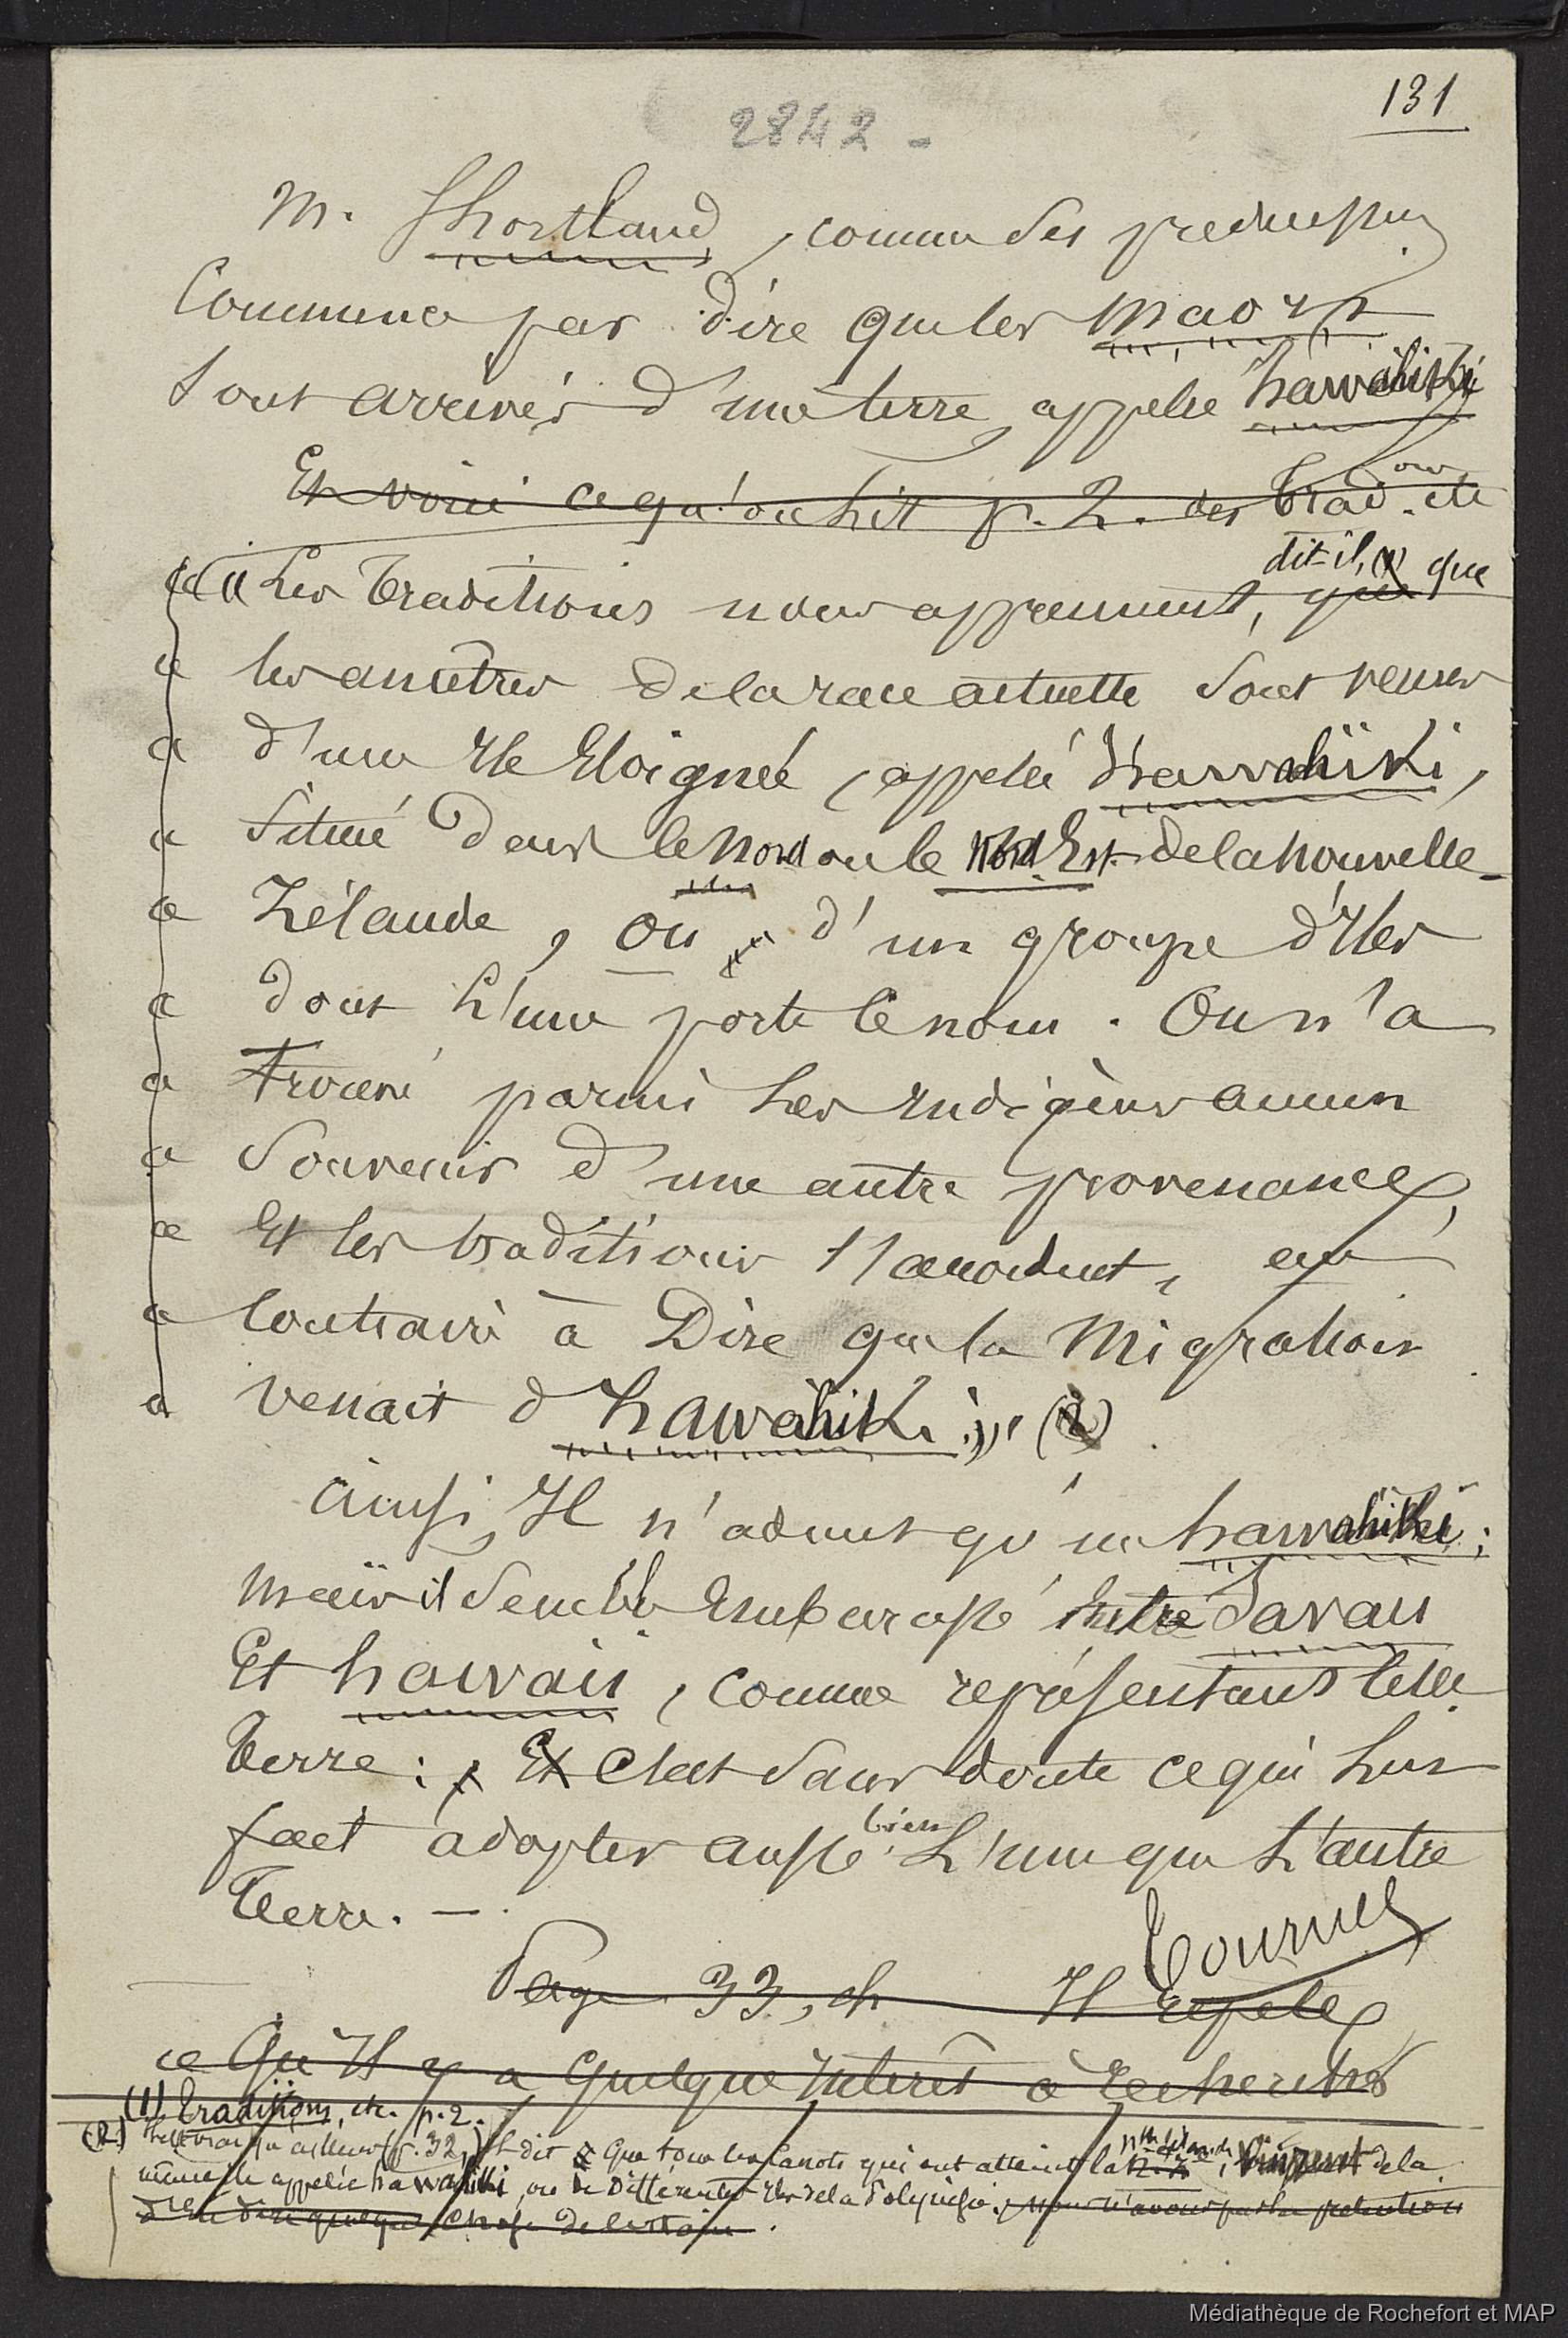 131
2842 -
M. Shortland, comme ses prédécesseurs
Commence par dire que les Maoris
sont arrivés d'une terre appelée hawahiki
Et voici ce qu'on lit p. 2. des Trad. etc
dit-il, (1) que
« Les Traditions nous apprennent, que
« les ancêtres de la race actuelle sont venus
« d'une Ile Eloignée, appelée hawahiki,
« située dans le Nord ou le Nord Est de la Nouvelle-
« Zélande, ou d'un groupe d'Iles
« dont L'une porte Ce nom. On n'a
« trouvé parmi Les Indigènes aucun
« Souvenir d'une autre provenance,
« Et les traditions s'accordent, au
« Contraire à Dire que la Migration
« venait d'hawahiki ;» (2)
Ainsi, Il n'admet qu'une hawahiki ;
Mais il semble Embarrassé Entre Savaii
Et hawaii, Comme représentant Cette
Terre : Et C'est Sans doute ce qui Lui
fait adopter aussi bien L'une que L'autre
Terre. —
Tournez
Page 33, Il Répète
ce Qu'Il y a Quelque Intérêt à Rechercher
(1) Traditions, etc. p. 2.
(2) Il est vrai qu'ailleurs (p. 32) Il dit Que tous les Canots qui ont atteint la N. Z. vinrent de la
même île appelée hawahiki, ou de Différentes Iles de la Polynésie ; Nous n'avons pas la prétention
d'En dire quelque Chose De Certain.
Médiathèque de Rochefort et MAP